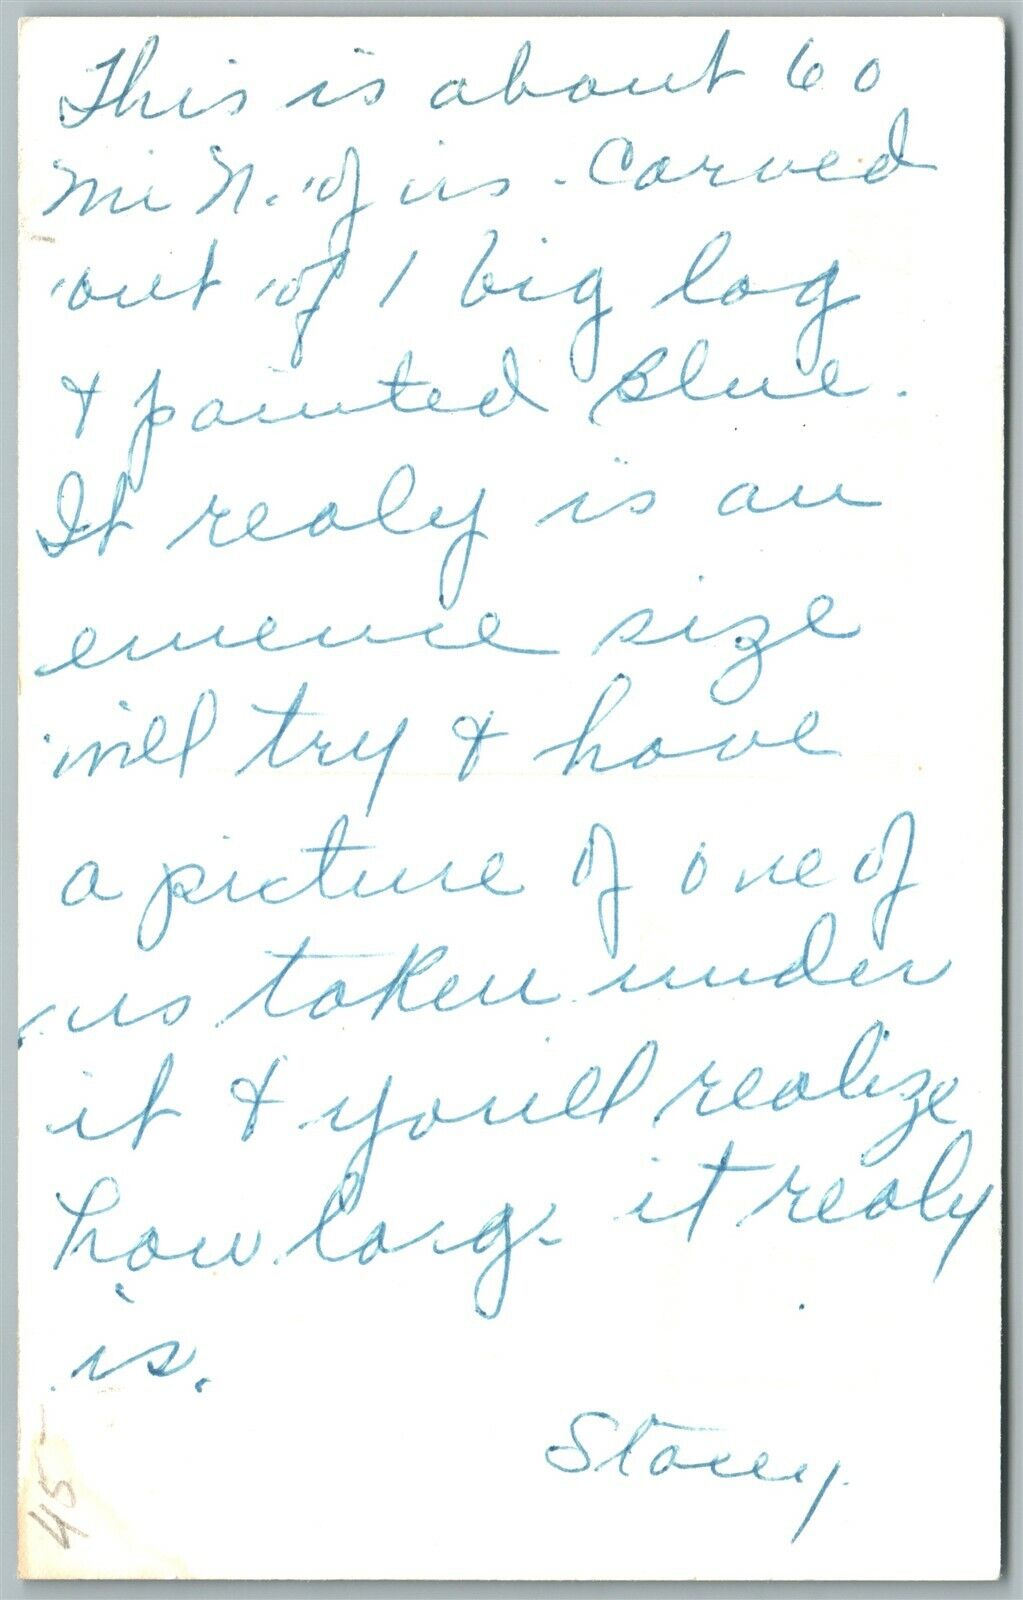 This is about 60
mi N. of us. Carved
out of 1 big log
& painted Blue.
It realy is an
emence size
will try & have
a picture of one of
us taken under
it & you'll realize
how larg it realy
is.
Stacey.
45